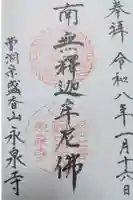 奉拝 令和八年一月十六日
南無釋迦牟尼佛
曹洞宗盛香山永泉寺